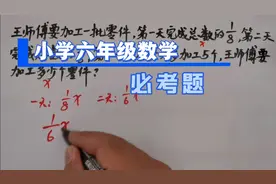 王师傅要加工一批零件，第一天完成总数的1/8，第二天
完
加工5个，王师傅要
加工多少个零件？
小学六年级数学
必考题
一天：1/8x 二天：1/6x
1/6x